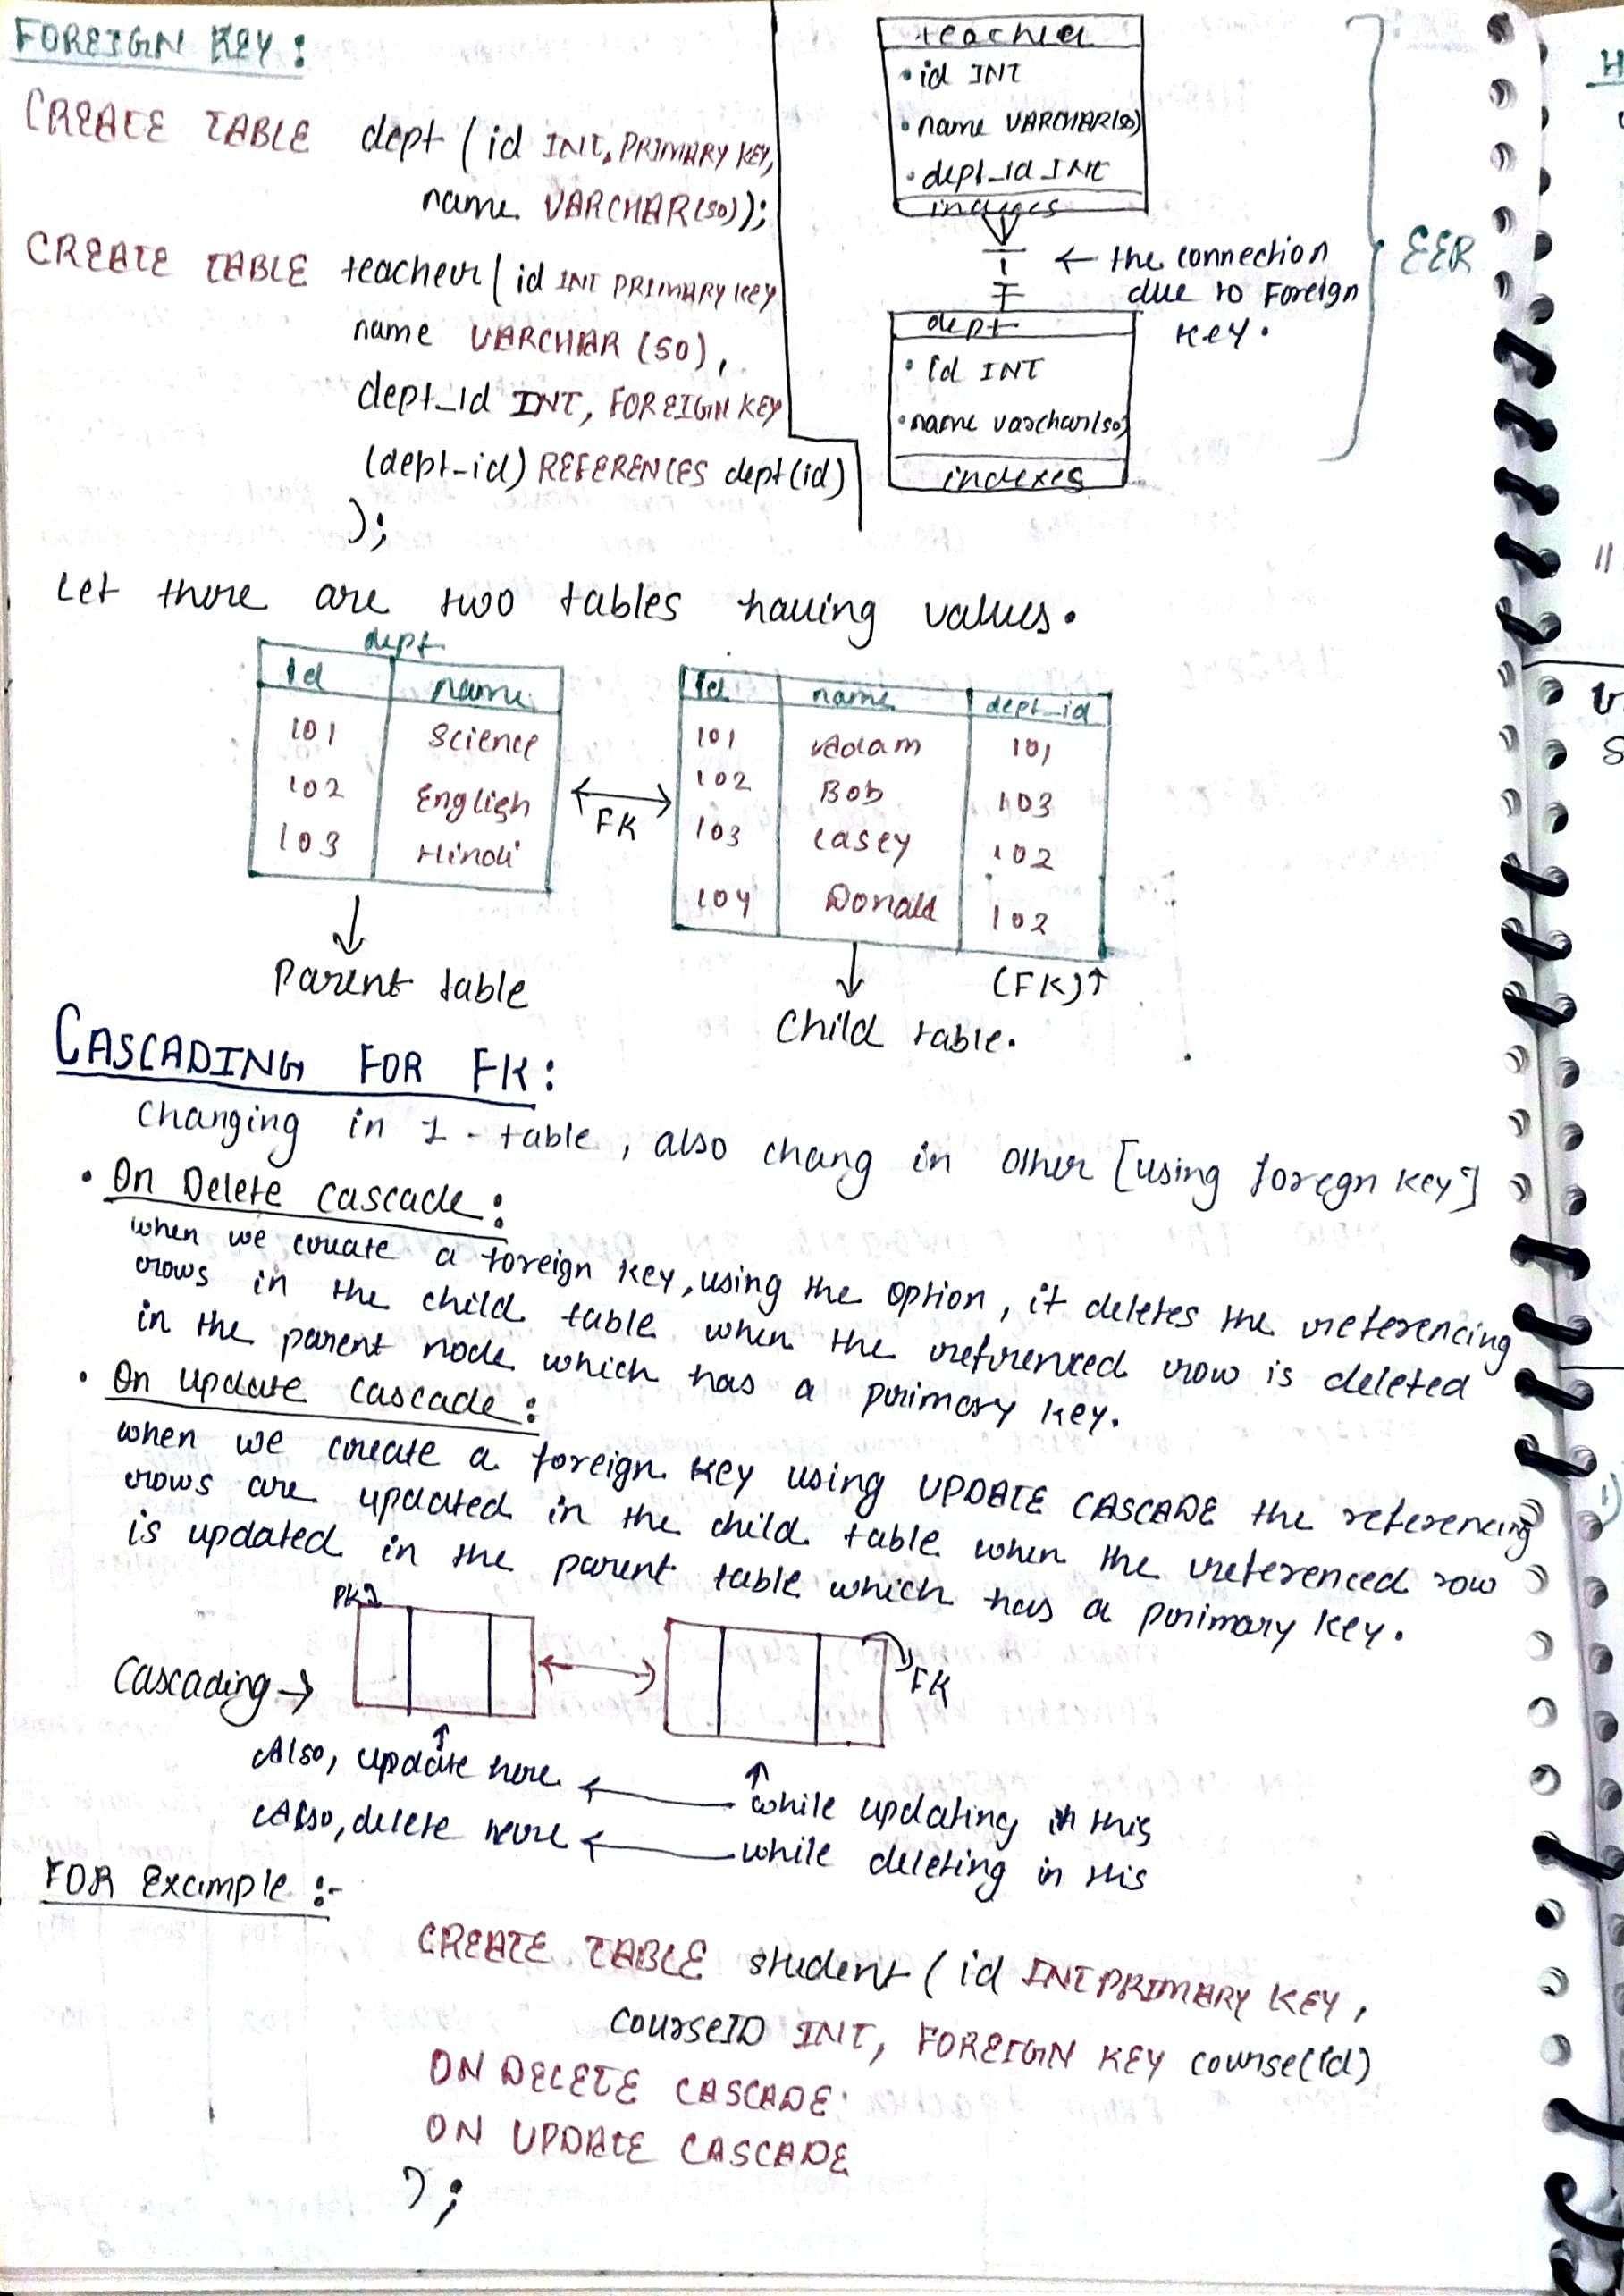 FOREIGN KEY:
CREATE TABLE dept (id INT, PRIMARY KEY,
name VARCHAR(50));
CREATE TABLE teacher (id INT PRIMARY KEY
name VARCHAR (50),
dept_id INT, FOREIGN KEY
(dept_id) REFERENCES dept(id)
);
teacher
• id INT
• name VARCHAR(50)
• dept_id INT
← the connection
due to Foreign
Key.
dept
• id INT
• name varchar(50)
indexes
EER
Let there are two tables having values.
dept
id name
101 Science
102 English
103 Hindi
FK
id name dept_id
101 Adam 101
102 Bob 103
103 Casey 102
104 Donald 102
Parent table
(FK)↑
Child table.
CASCADING FOR FK:
Changing in 1-table, also chang in other [using foregn key]
• On Delete Cascade:
when we create a foreign key, using the option, it deletes the referencing
rows in the child table when the referenced row is deleted
in the parent node which has a primary key.
• On update Cascade:
when we create a foreign key using UPDATE CASCADE the referencing
rows are updated in the child table when the referenced row
is updated in the parent table which has a primary key.
PK
FK
Cascading →
Also, update here ← while updating in this
Also, delete here ← while deleting in this
FOR Example :-
CREATE TABLE student (id INT PRIMARY KEY,
courseID INT, FOREIGN KEY course(id)
ON DELETE CASCADE
ON UPDATE CASCADE
);